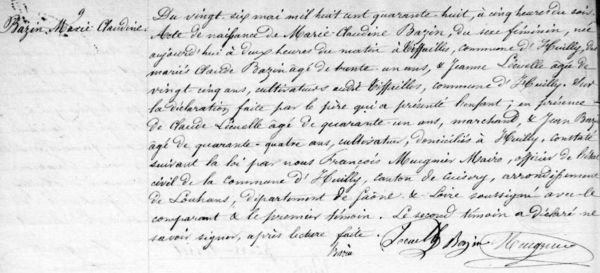 9
Bazin Marie Claudine.
Du vingt six mai mil huit cent quarante huit, à cinq heures du soir
Acte de naissance de Marie Claudine Bazin, du sexe féminin, née
aujourd'hui à deux heures du matin à Tiffailles, commune d'Huilly, des
mariés Claude Bazin agé de trente un ans, & Jeanne Lievelle agée de
vingt cinq ans, cultivateurs audit Tiffailles, commune d'Huilly. Sur
la déclaration faite par le père qui a présenté l'enfant; en présence
de Claude Lievelle agé de quarante un ans, marchand, & Jean Baz
agé de quarante-quatre ans, cultivateur, domiciliés à Huilly. Constaté
suivant la loi par nous François Muegnier Maire, officier de l'état
civil de la commune d'Huilly, canton de Cuisery, arrondissement
de Louhans, département de Saône & Loire soussigné avec le
comparant & le premier témoin. Le second témoin a déclaré ne
savoir signer, après lecture faite.
Bazin